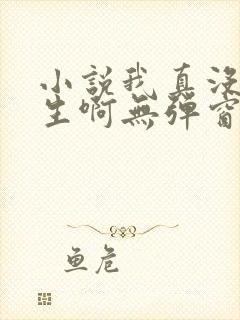 小説我真沒
生啊無彈窗
鱼危